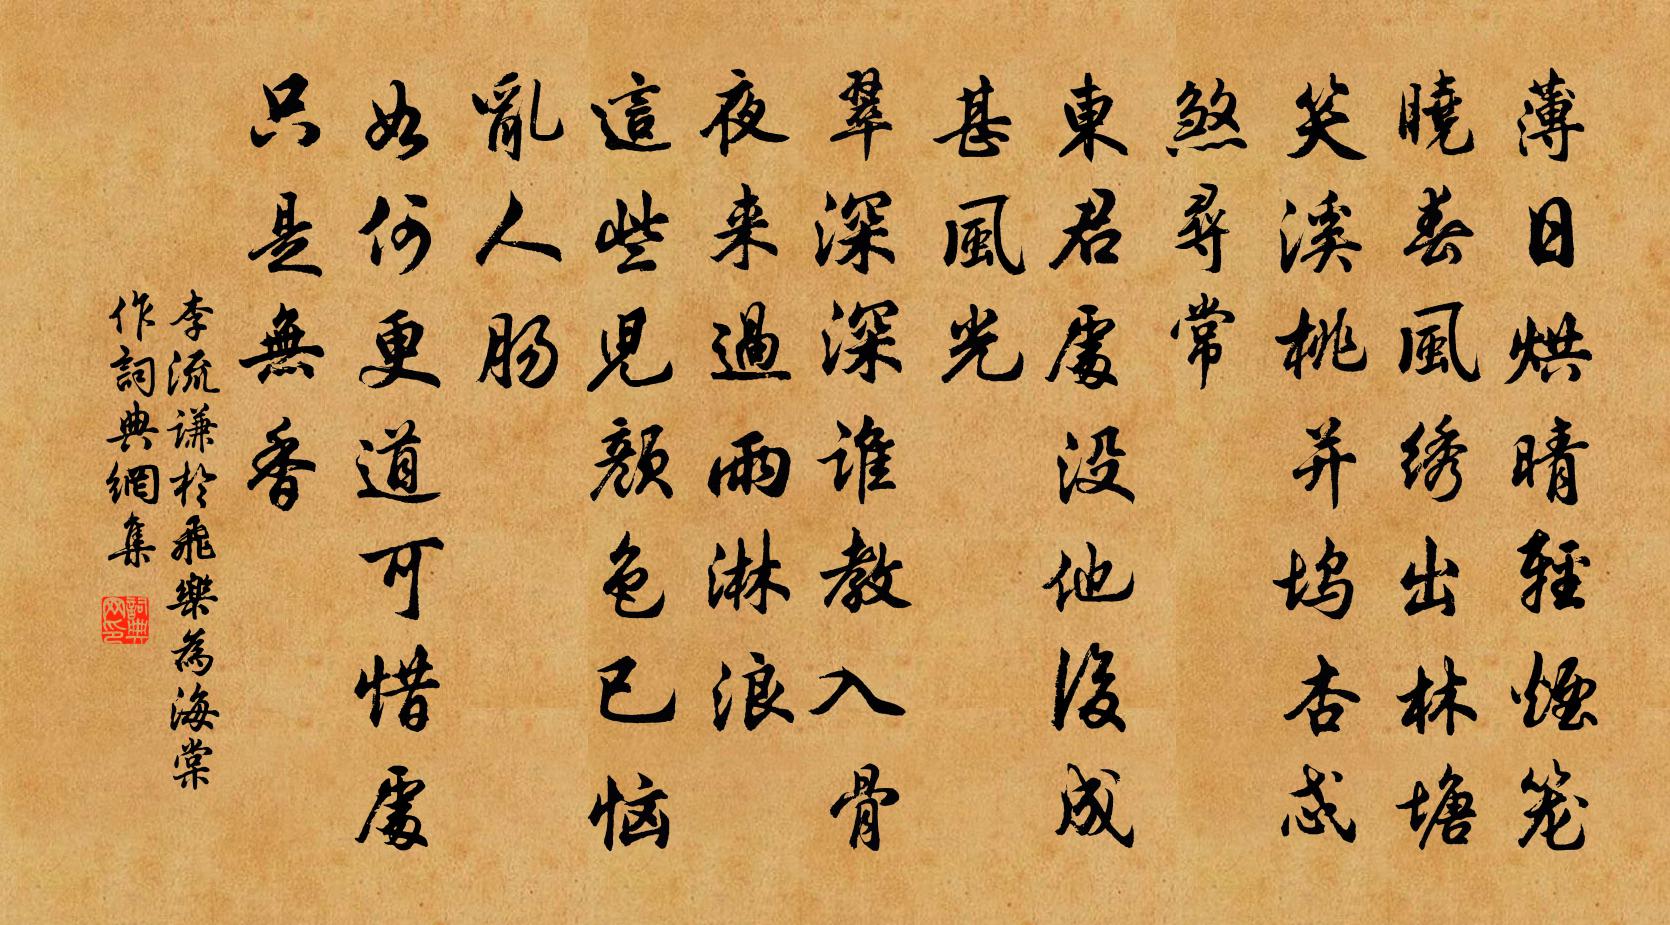 薄日烘晴輕煙笼
曉春風绣出林塘
笑溪桃并坞杏忒
煞尋常
東君處没他後成
甚風光
翠深深谁教入骨
夜来過雨淋浪
這些児颜色已恼
亂人肠
如何更道可惜處
只是無香
李流谦於飛樂為海棠
作詞典網集
詞典网印